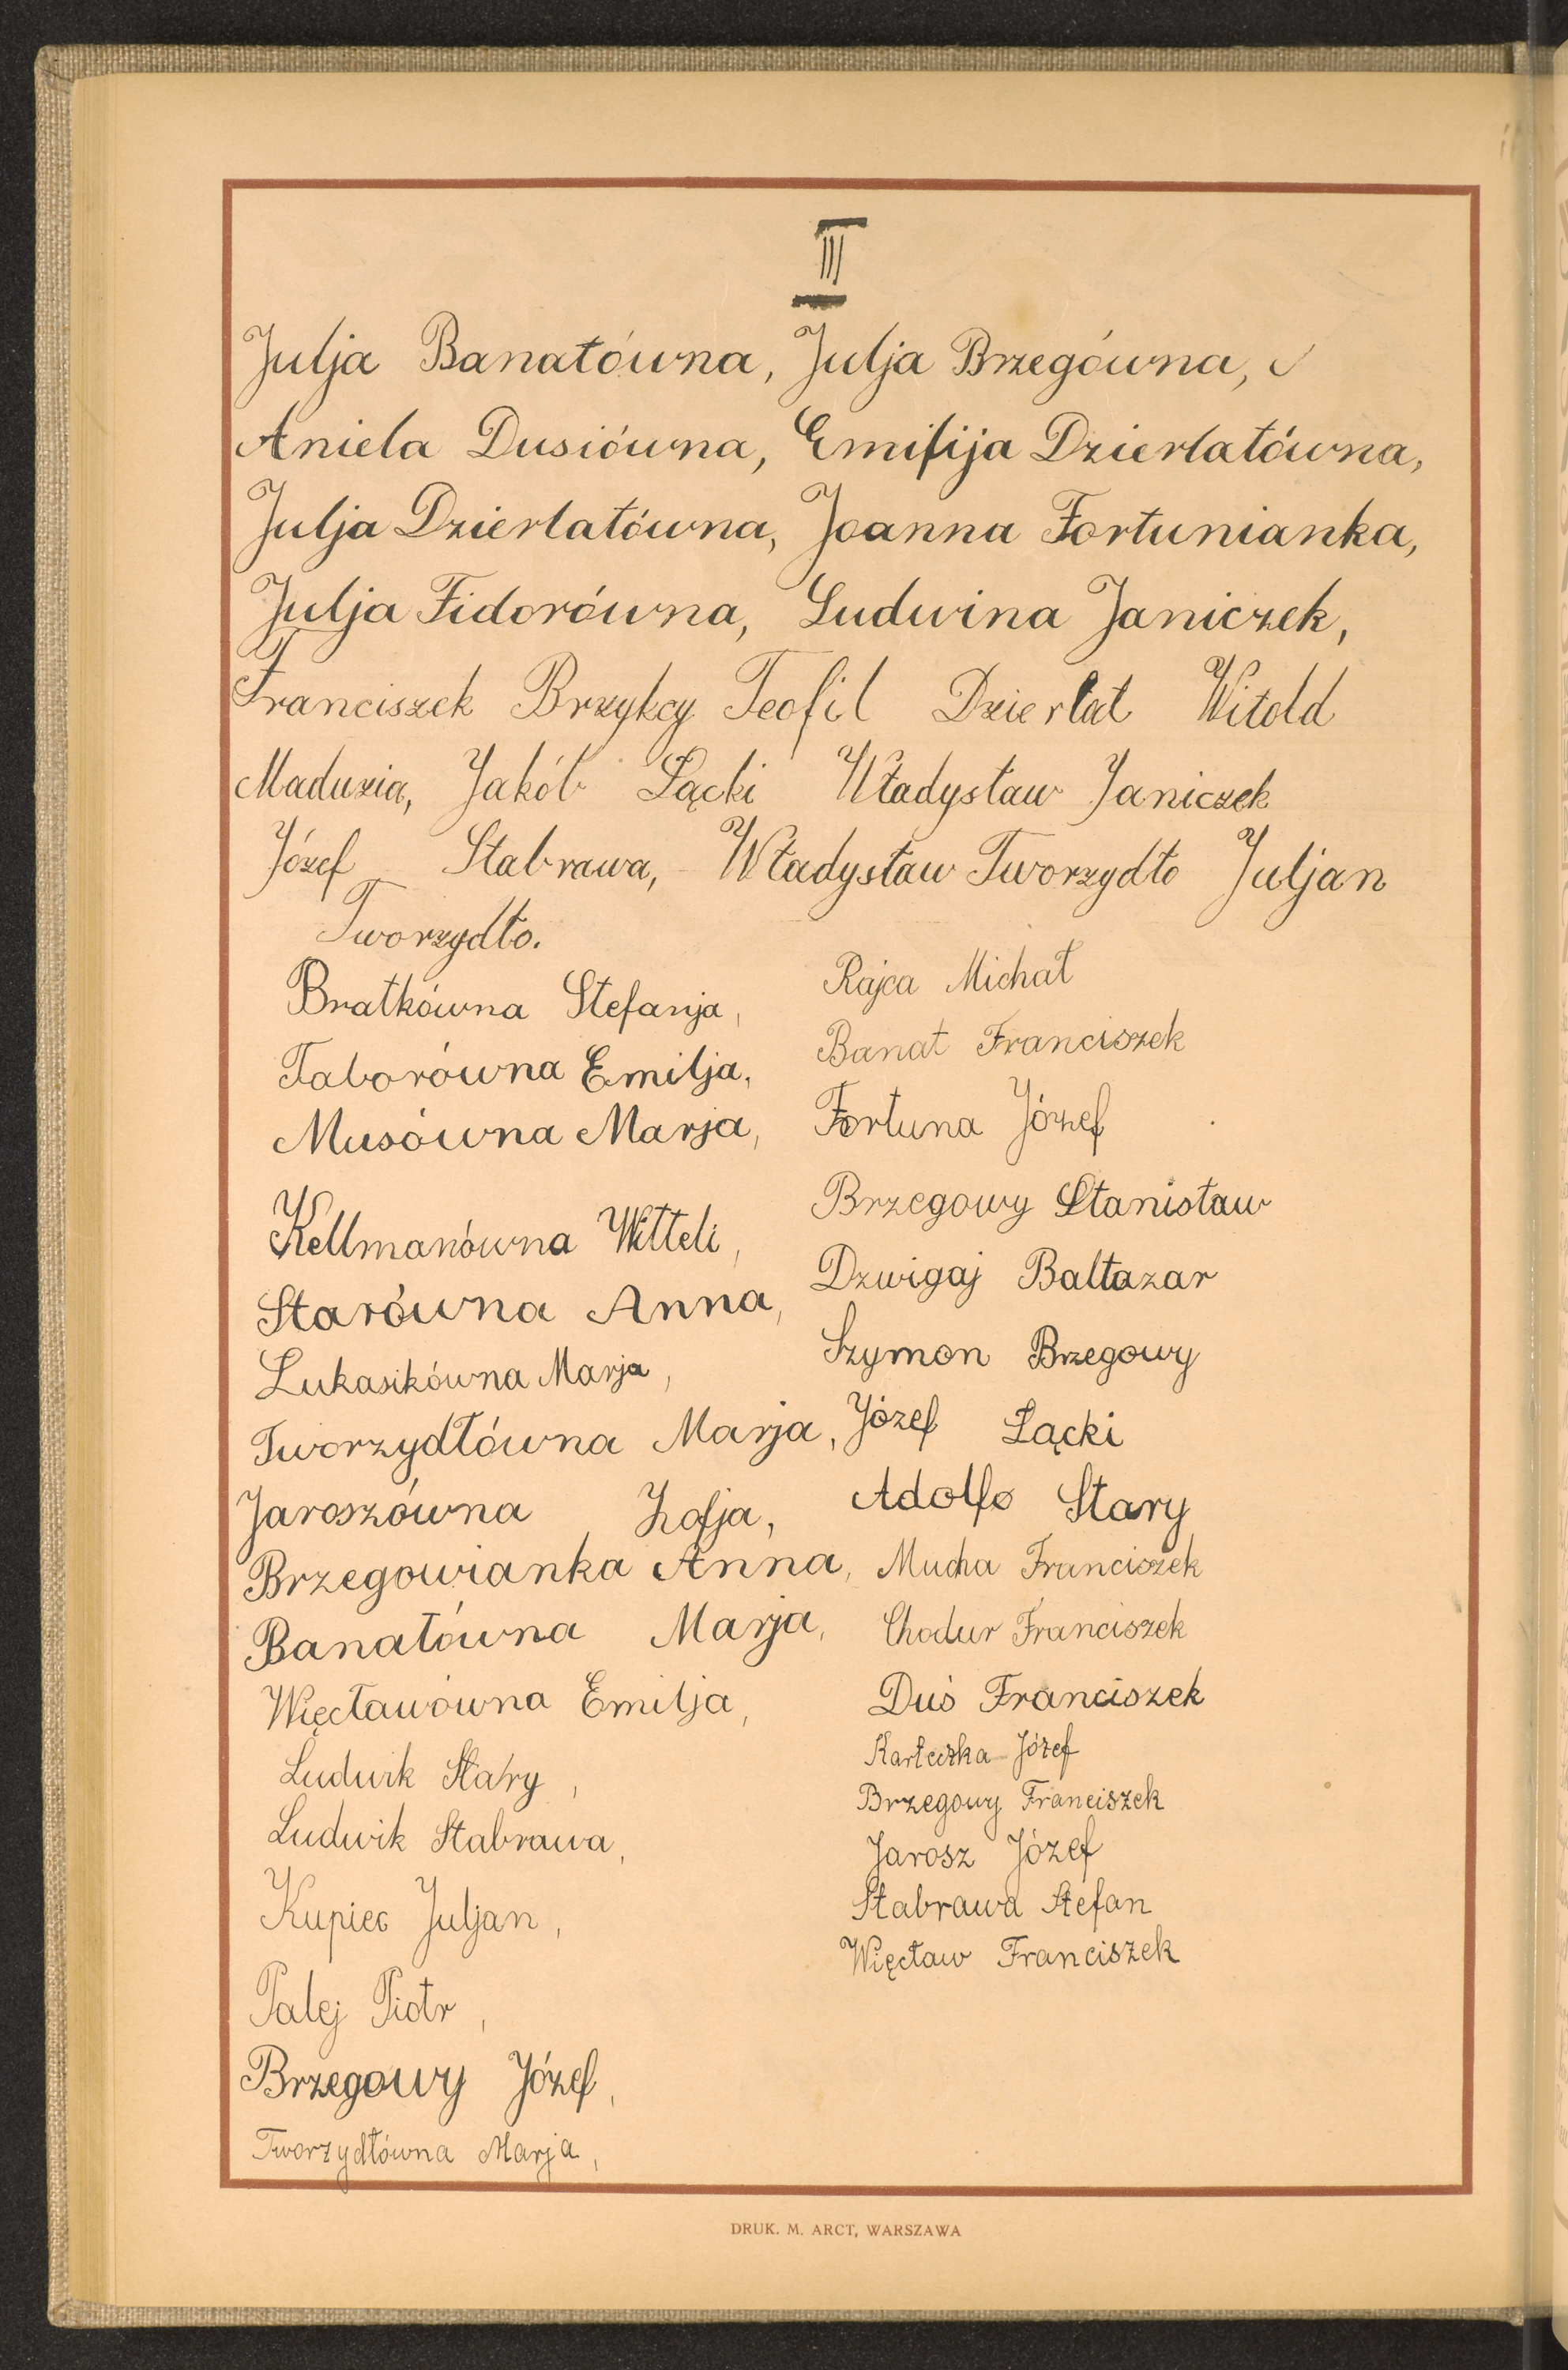 III
Julja Banatówna, Julja Brzegówna,
Aniela Dusiówna, Emilija Dzierlatówna,
Julja Dzierlatówna, Joanna Fortunianka,
Julja Fidorówna, Ludwina Janiczek,
Franciszek Brzykcy Teofil Dzierlat Witold
Maduzia, Jakób Łącki Władysław Janiczek
Józef Stabrawa, Władysław Tworzydło Juljan
Tworzydło.
Bratkówna Stefanja,
Taborówna Emilja,
Musówna Marja,
Kellmanówna Witteli,
Starówna Anna,
Łukasikówna Marja,
Tworzydłówna Marja,
Jaroszówna Zofja,
Brzegowianka Anna,
Banatówna Marja,
Więcławówna Emilja,
Ludwik Stary,
Ludwik Stabrawa,
Kupiec Juljan,
Palej Piotr,
Brzegowy Józef,
Tworzydłówna Marja,
Rajca Michał
Banat Franciszek
Fortuna Józef
Brzegowy Stanisław
Dzwigaj Baltazar
Szymon Brzegowy
Józef Łącki
Adolf Stary
Mucha Franciszek
Chodur Franciszek
Duś Franciszek
Karteczka Józef
Brzegowy Franciszek
Jarosz Józef
Stabrawa Stefan
Więcław Franciszek
DRUK. M. ARCT, WARSZAWA